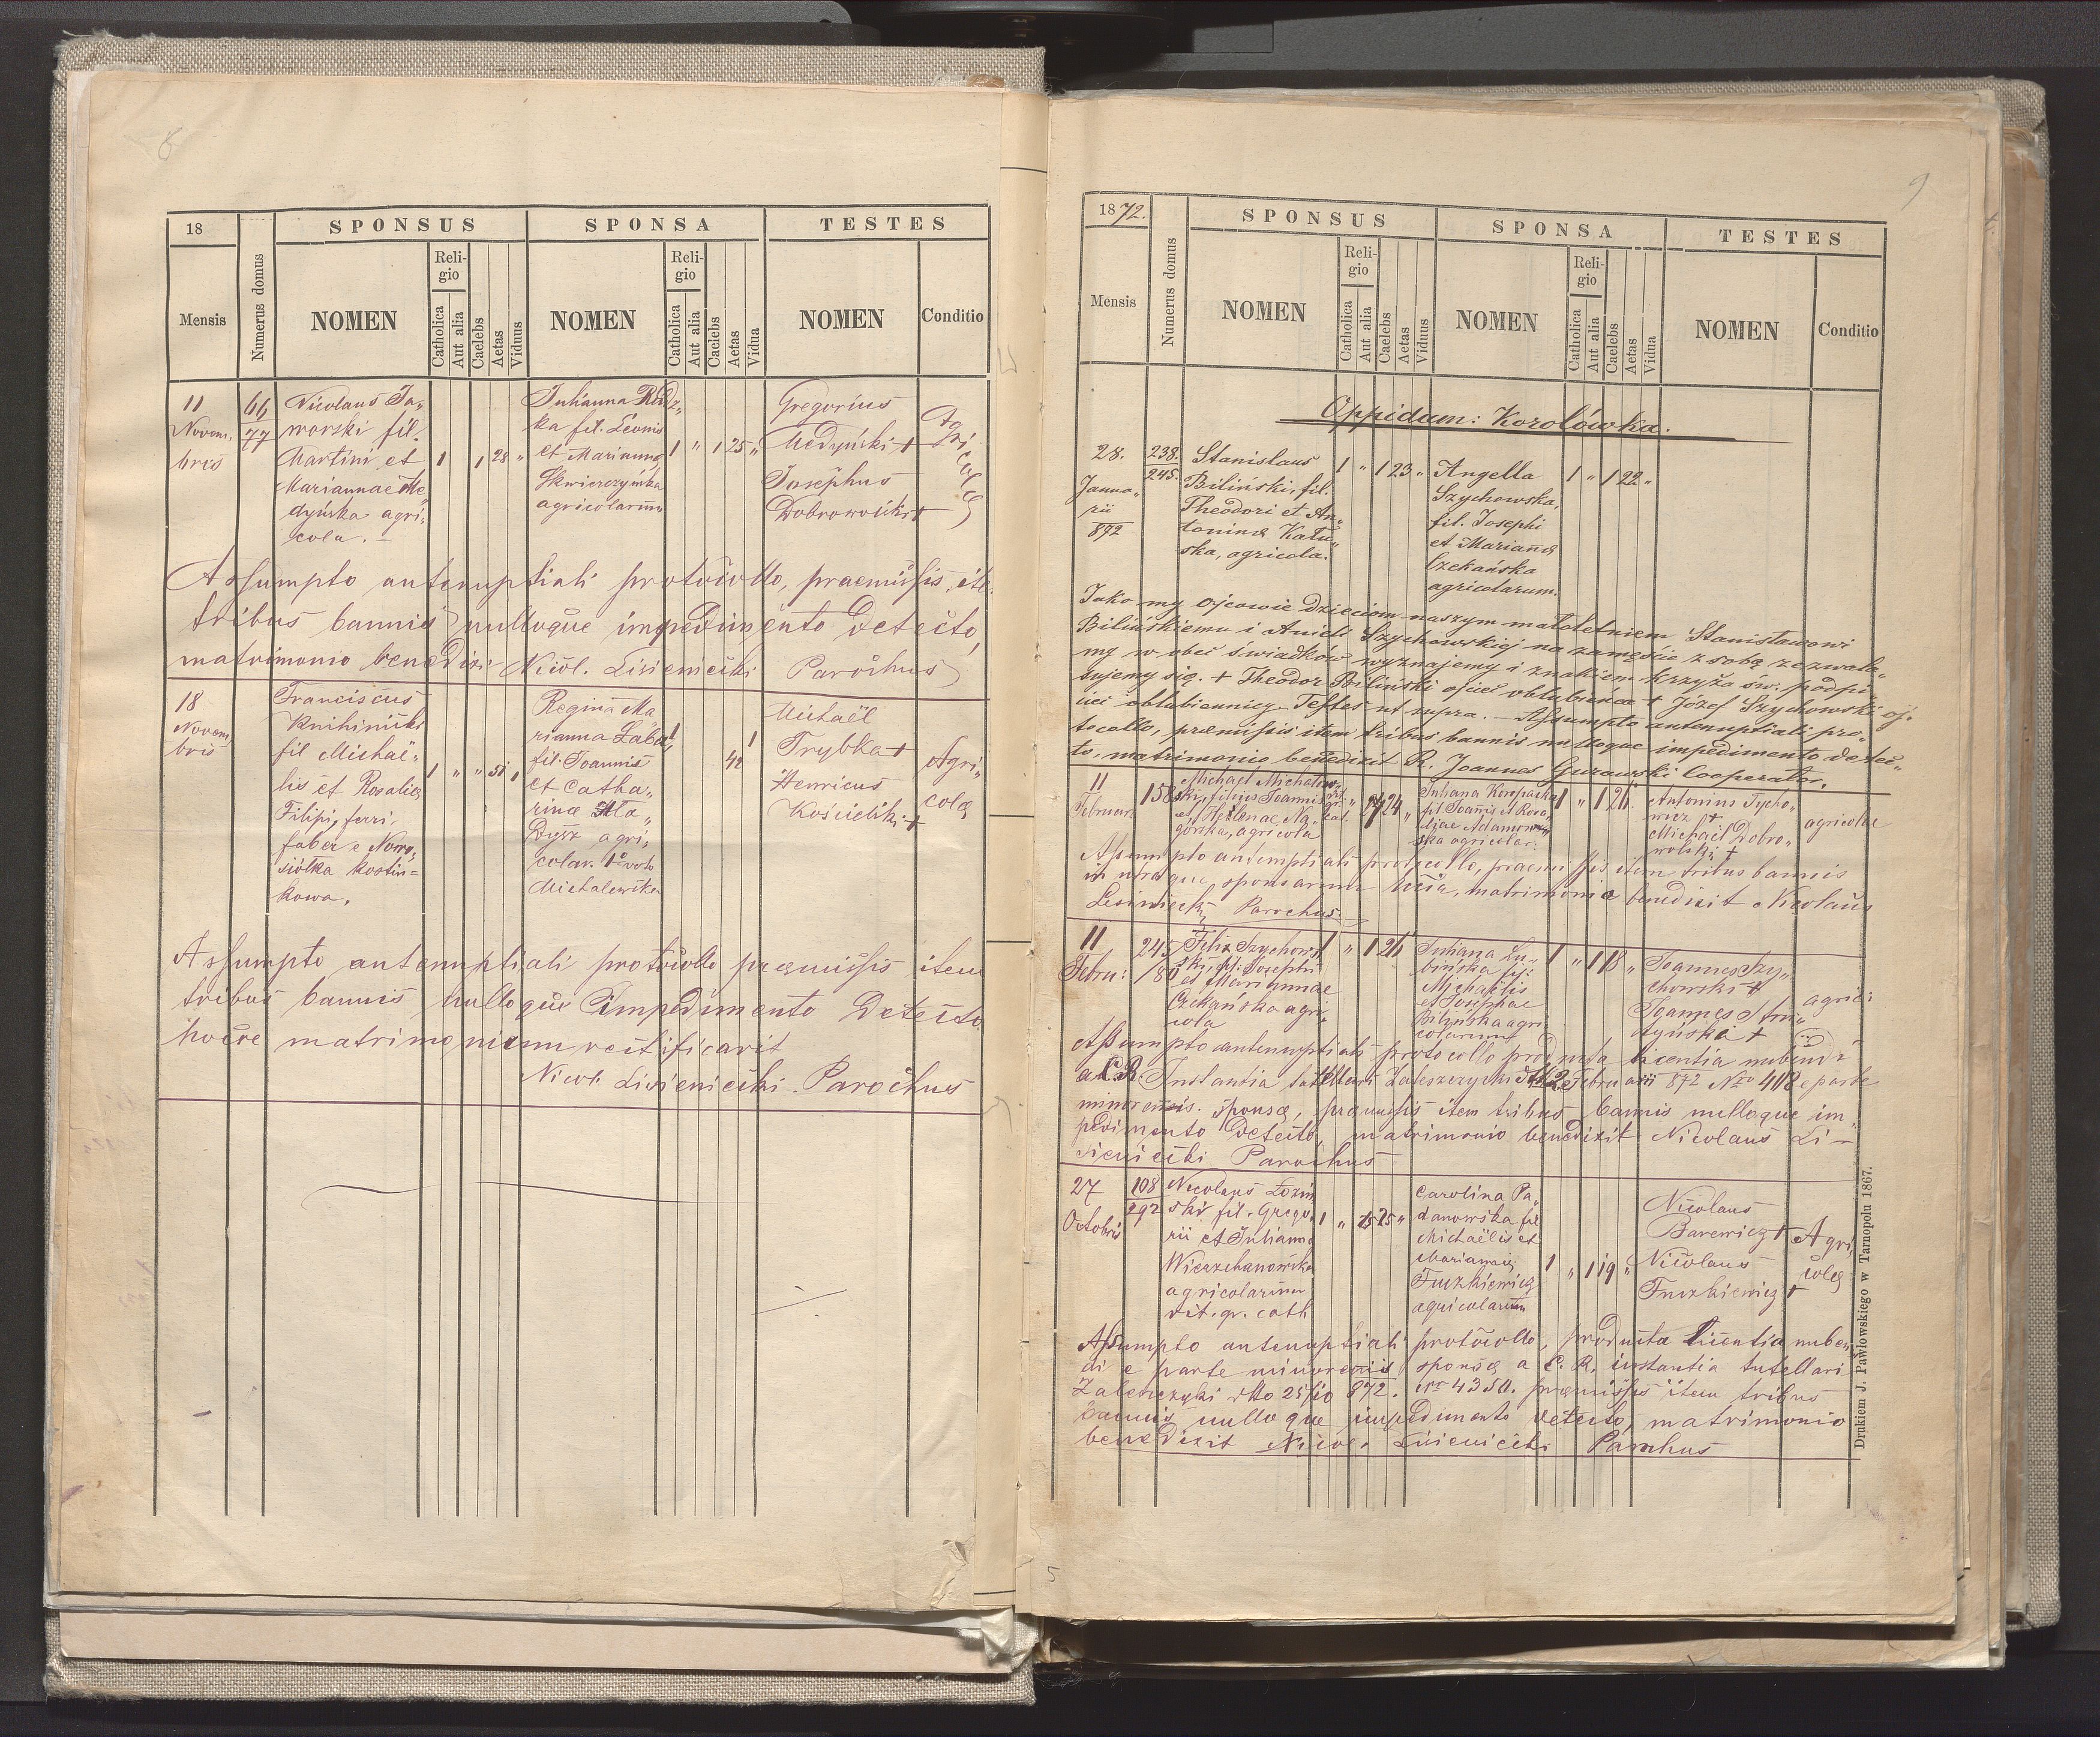 8
18
SPONSUS SPONSA TESTES
Mensis Numerus domus NOMEN Religio Catholica Aut alia Caelebs Aetas Viduus NOMEN Religio Catholica Aut alia Caelebs Aetas Vidua NOMEN Conditio
11 Novembris
66
77
Nicolaus Ja„
worski fil.
Martini et
Mariannae Me
dyńska agri„
cola. –
1 1 28 „
Julianna Redz„
ka fil. Leonis
et Mariannæ
Skwierczyńska
agricolarum
1 „ 1 25 „
Gregorius
Medyński +
Josephus
Dobrowolski +
Agricolæ
Assumpto antenuptiali protocollo, praemissis ite
tribus bannis nulloque impedimento detecto,
matrimonio benedixi Nicol. Lisieniecki Parochus
18
Novem
bris
Franciscus
Knihinicki
fil Michaë„
lis et Rosaliæ
Filipi, ferri
faber e Nowo„
siółka kostiu=
kowa.
1 „ „ 51 1
Regina Ma
rianna
fil. Joannis
et Catha„
rinæ
agri„
colar. 1° voto
Michalewska
1 42 1
Michaël
Trybka +
Henricus
Kościelski +
Agri„
colæ
Assumpto antenuptiali protocollo præmissis item
tribus bannis nulloque impedimento detecto
hocce matrimonium rectificavit
Nicol. Lisieniecki Parochus
9
1872.
SPONSUS SPONSA TESTES
Mensis Numerus domus NOMEN Religio Catholica Aut alia Caelebs Aetas Viduus NOMEN Religio Catholica Aut alia Caelebs Aetas Vidua NOMEN Conditio
Oppidum: Korolówka.
28.
Janua„
rii
872
238.
245.
Stanislaus
Biliński, fil.
Theodori et An„
toninæ Katu„
ska, agricola.
1 „ 1 23 „
Angella
Szychowska,
fil. Josephi
et Mariannæ
Czekańska
agricolarum.
1 „ 1 22 „
Jako my Ojcowie dzieciom naszym małoletniem Stanisławowi
Bilińskiemu i Anieli Szychowskiej na zamęście z sobą zezwala„
my w obec świadków wyznajemy i znakiem krzyża św. podpi„
sujemy się. + Theodor Biliński ojciec oblubieńca + Józef Szychowski oj„
ciec oblubiennicy. Testes ut supra. – Assumpto antenuptiali pro„
tocollo, præmissis item tribus bannis nulloque impedimento detec„
to, matrimonio benedixit R. Joannes Gurawski Cooperator.
11
Februar.
158
Michael Michalow„
ski, filius Joannis
et Helenae Na„
górska, agricola
24 „
Juliana Korpacka
fil. Joannis et Rosa„
liae Adamow„
ska agricolar.
1 „ 1 26.
Antonius Tycho„
wicz +
Michaël Dobro„
wolski +
agricolae
Assumpto antenuptiali protocollo, praemissis item tribus bannis
in utraque sponsorum matrimonio benedixit Nicolaus
Lisieniecki, Parochus.
11
Febru:
245
180
Felix Szychow„
ski, fil. Josephi
et Mariannae
Czekańska agri„
cola
1 „ 1 26
Juliana Lu„
bińska fil:
Michaëlis
et Josephae
Bilińska agri
colarum
1 „ 1 18 „
Joannes Szy„
chowski +
Joannes
+
agrico
Assumpto antenuptiali protocollo producta licentia nubendi
a C.R. Instantia tutellari Zaleszczyki dto 2 Februarii 872 Nro 418 e parte
minorennis sponsæ, præmissis item tribus bannis nulloque im„
pedimento detecto, matrimonio benedixit Nicolaus Li–
sieniecki Parochus
27
Octobris
108
292
Nicolaus Łoziń
ski fil. Grego„
rii et Juliannæ
Wierzchanowska
agricolarum
rit. gr. cath
1 „ 25 „
Carolina Pa„
danowska fil
Michaëlis et
Mariannæ
Fuczkiewicz
agricolarum
1 „ 1 19 „
Nicolaus
Barewicz +
Nicolaus
Fuczkiewicz +
Agri„
colæ
Assumpto antenuptiali protocollo, producta licentia nuben
di e parte minorennis sponsæ a C. R. instantia tutellari
Zaleszczyki dto 25/10 872. Nro 4350. præmissis item tribus
bannis nulloque impedimento detecto, matrimonio
benedixit Nicol. Lisieniecki Parochus
Drukiem J. Pawłowskiego w Tarnopolu 1867.